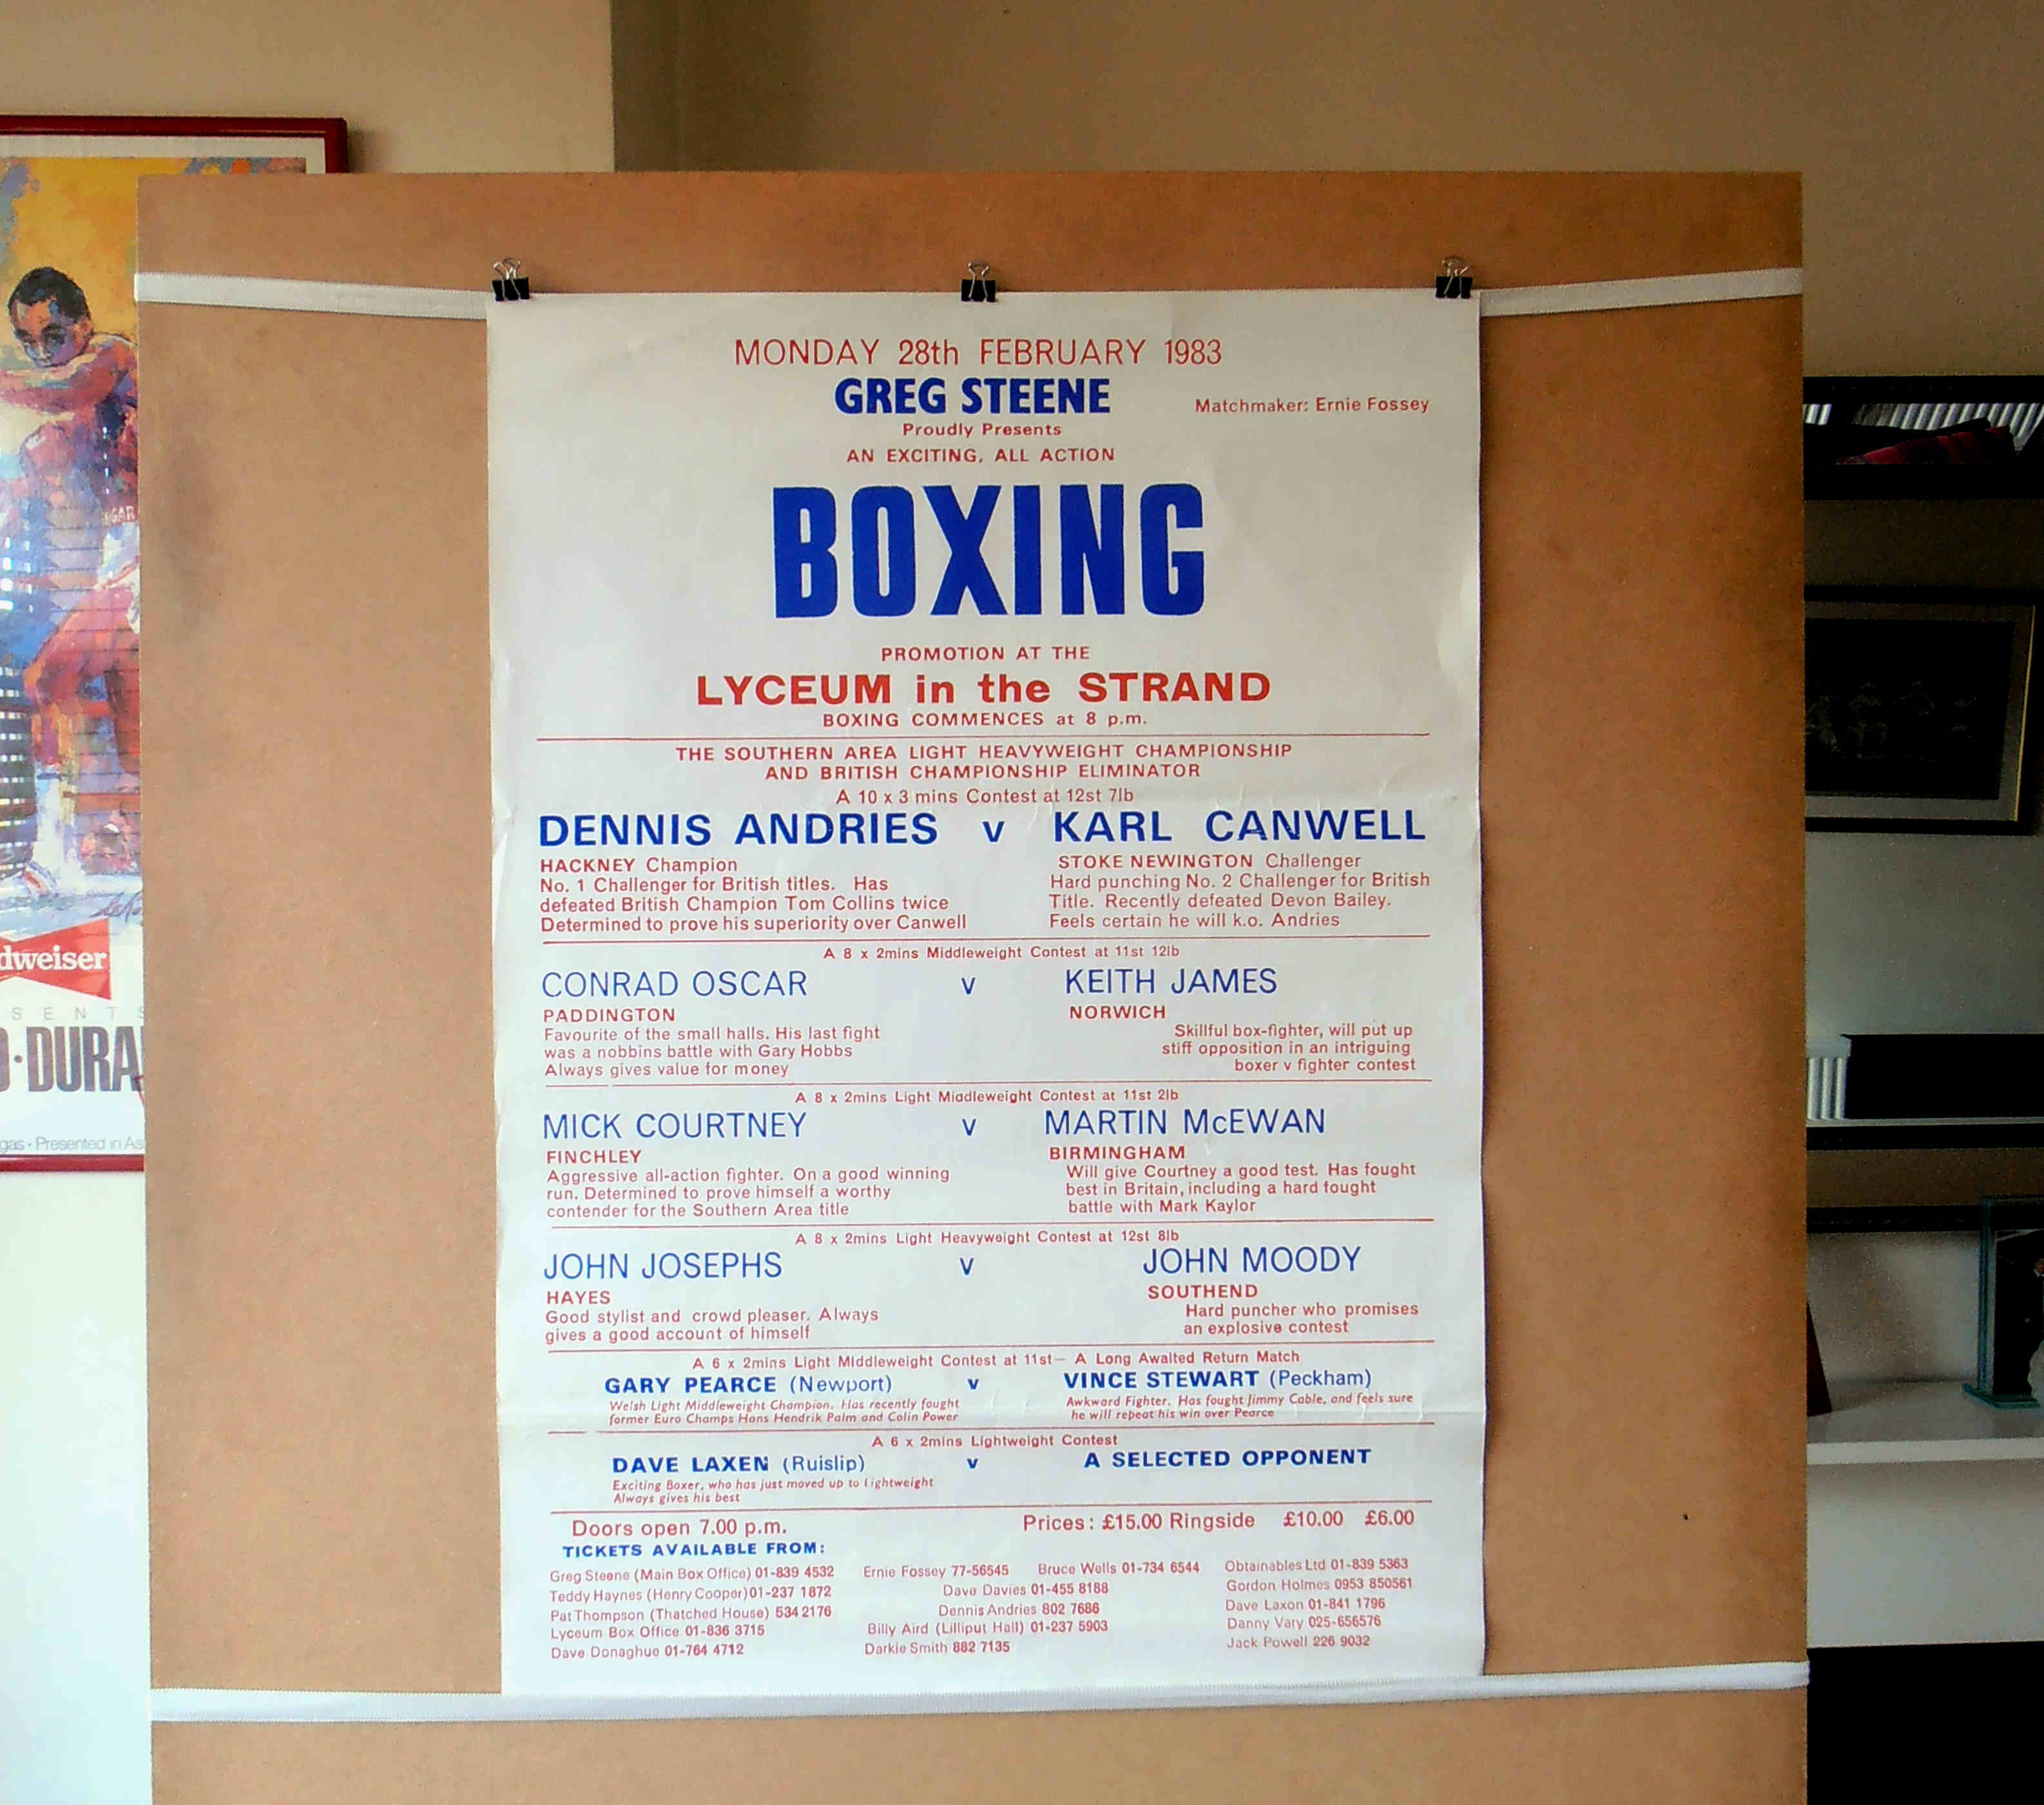 MONDAY 28th FEBRUARY 1983
GREG STEENE
Matchmaker: Ernie Fossey
Proudly Presents
AN EXCITING, ALL ACTION
BOXING
PROMOTION AT THE
LYCEUM in the STRAND
BOXING COMMENCES at 8 p.m.
THE SOUTHERN AREA LIGHT HEAVYWEIGHT CHAMPIONSHIP
AND BRITISH CHAMPIONSHIP ELIMINATOR
A 10 x 3 mins Contest at 12st 7lb
DENNIS ANDRIES v KARL CANWELL
HACKNEY Champion
No. 1 Challenger for British titles. Has
defeated British Champion Tom Collins twice
Determined to prove his superiority over Canwell
STOKE NEWINGTON Challenger
Hard punching No. 2 Challenger for British
Title. Recently defeated Devon Bailey.
Feels certain he will k.o. Andries
A 8 x 2mins Middleweight Contest at 11st 12lb
CONRAD OSCAR v KEITH JAMES
PADDINGTON
Favourite of the small halls. His last fight
was a nobbins battle with Gary Hobbs
Always gives value for money
NORWICH
Skillful box-fighter, will put up
stiff opposition in an intriguing
boxer v fighter contest
A 8 x 2mins Light Middleweight Contest at 11st 2lb
MICK COURTNEY v MARTIN McEWAN
FINCHLEY
Aggressive all-action fighter. On a good winning
run. Determined to prove himself a worthy
contender for the Southern Area title
BIRMINGHAM
Will give Courtney a good test. Has fought
best in Britain, including a hard fought
battle with Mark Kaylor
A 8 x 2mins Light Heavyweight Contest at 12st 8lb
JOHN JOSEPHS v JOHN MOODY
HAYES
Good stylist and crowd pleaser. Always
gives a good account of himself
SOUTHEND
Hard puncher who promises
an explosive contest
A 6 x 2mins Light Middleweight Contest at 11st— A Long Awaited Return Match
GARY PEARCE (Newport) v VINCE STEWART (Peckham)
Welsh Light Middleweight Champion. Has recently fought
former Euro Champs Hans Hendrik Palm and Colin Power
Awkward Fighter. Has fought Jimmy Cable, and feels sure
he will repeat his win over Pearce
A 6 x 2mins Lightweight Contest
DAVE LAXEN (Ruislip) v A SELECTED OPPONENT
Exciting Boxer, who has just moved up to Lightweight
Always gives his best
Doors open 7.00 p.m. Prices: £15.00 Ringside £10.00 £6.00
TICKETS AVAILABLE FROM:
Greg Steene (Main Box Office) 01-839 4532
Teddy Haynes (Henry Cooper) 01-237 1872
Pat Thompson (Thatched House) 534 2176
Lyceum Box Office 01-836 3715
Dave Donaghue 01-764 4712
Ernie Fossey 77-56545 Bruce Wells 01-734 6544
Dave Davies 01-455 8188
Dennis Andries 802 7686
Billy Aird (Lilliput Hall) 01-237 5903
Darkie Smith 882 7135
Obtainables Ltd 01-839 5363
Gordon Holmes 0953 850561
Dave Laxon 01-841 1796
Danny Vary 025-656576
Jack Powell 226 9032
dweiser
SENTS
·DURA
gas · Presented in As